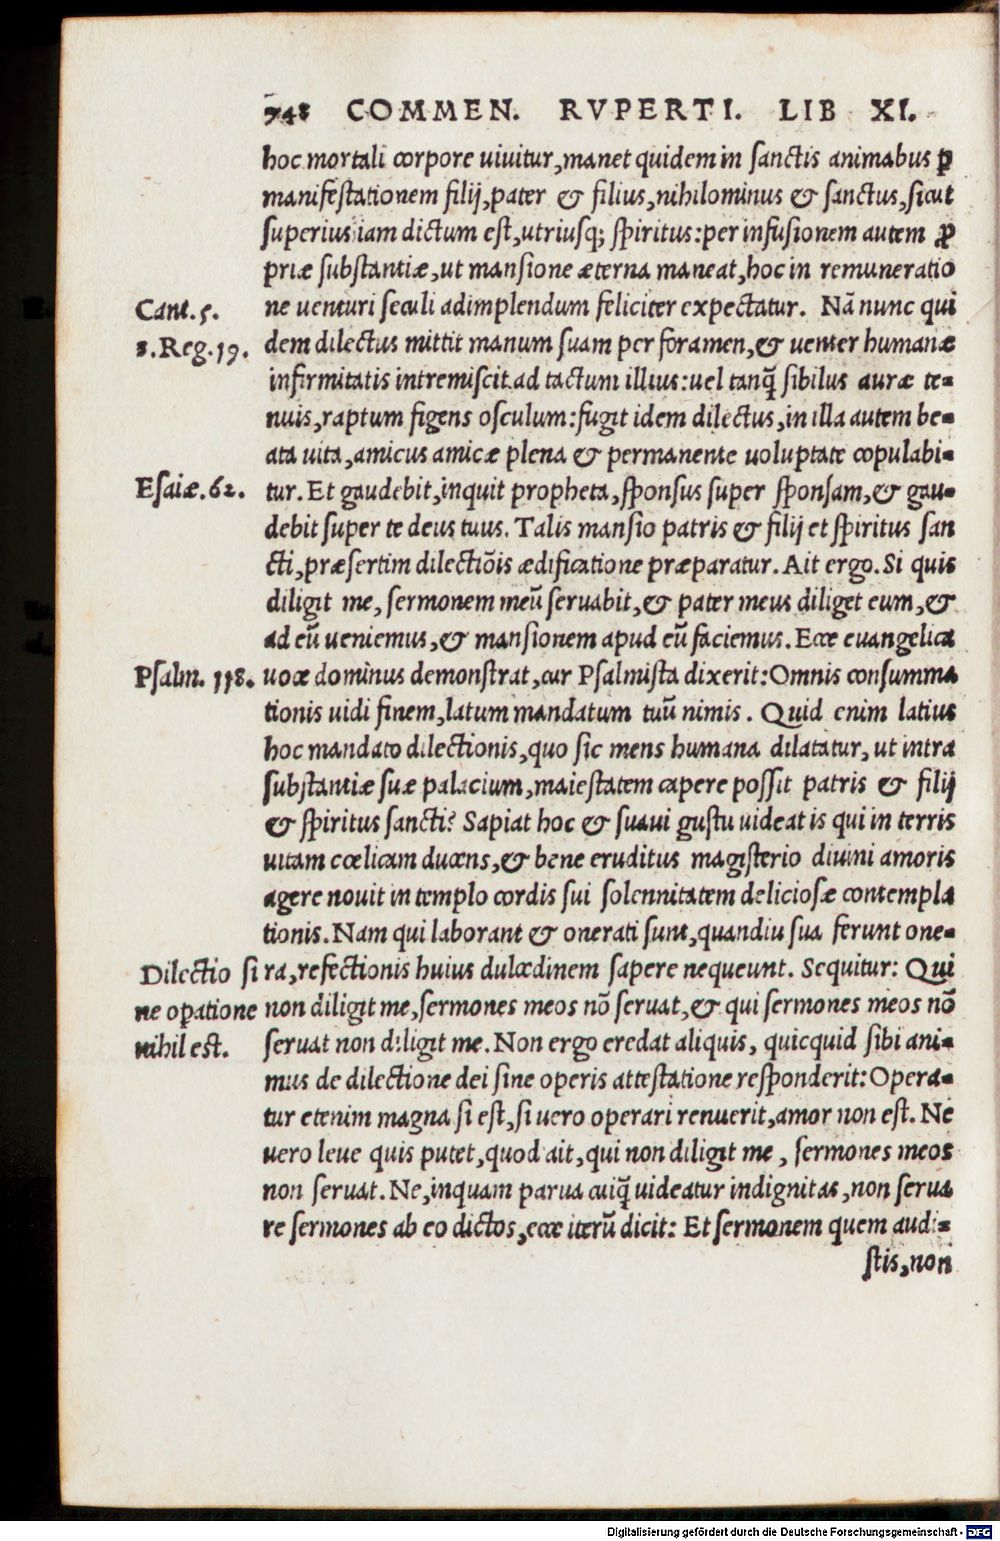 748 COMMEN. RVPERTI. LIB XI.
hoc mortali corpore uiuitur, manet quidem in sanctis animabus ꝑ
manifestationem filij, pater & filius, nihilominus & sanctus, sicut
superius iam dictum est, utriusq; spiritus: per infusionem autem ꝓ
priæ substantiæ, ut mansione æterna maneat, hoc in remuneratio
ne uenturi seculi adimplendum feliciter expectatur. Nā nunc qui
Cant. 5.
dem dilectus mittit manum suam per foramen, & uenter humanæ
3. Reg. 19.
infirmitatis intremiscit ad tactum illius: uel tanq̃ sibilus auræ te-
nuis, raptum figens osculum: fugit idem dilectus, in illa autem be-
ata uita, amicus amicæ plena & permanente uoluptate copulabi-
tur. Et gaudebit, inquit propheta, sponsus super sponsam, & gau-
Esaiæ. 62.
debit super te deus tuus. Talis mansio patris & filij et spiritus san
cti, præsertim dilectiōis ædificatione præparatur. Ait ergo. Si quis
diligit me, sermonem meū seruabit, & pater meus diliget eum, &
ad eū ueniemus, & mansionem apud eū faciemus. Ecce euangelica
uoce dominus demonstrat, cur Psalmista dixerit: Omnis consumma
Psalm. 118.
tionis uidi finem, latum mandatum tuū nimis. Quid enim latius
hoc mandato dilectionis, quo sic mens humana dilatatur, ut intra
substantiæ suæ palacium, maiestatem capere possit patris & filij
& spiritus sancti? Sapiat hoc & suaui gustu uideat is qui in terris
uitam cœlicam ducens, & bene eruditus magisterio diuini amoris
agere nouit in templo cordis sui solennitatem deliciosæ contempla
tionis. Nam qui laborant & onerati sunt, quandiu sua ferunt one-
ra, refectionis huius dulcedinem sapere nequeunt. Sequitur: Qui
non diligit me, sermones meos nō seruat, & qui sermones meos nō
seruat non diligit me. Non ergo credat aliquis, quicquid sibi ani-
Dilectio si
ne opatione
nihil est.
mus de dilectione dei sine operis attestatione responderit: Opera-
tur etenim magna si est, si uero operari renuerit, amor non est. Ne
uero leue quis putet, quod ait, qui non diligit me, sermones meos
non seruat. Ne, inquam parua cuiq̃ uideatur indignitas, non serua
re sermones ab eo dictos, ecce iterū dicit: Et sermonem quem audi-
stis, non
Digitalisierung gefördert durch die Deutsche Forschungsgemeinschaft - DFG